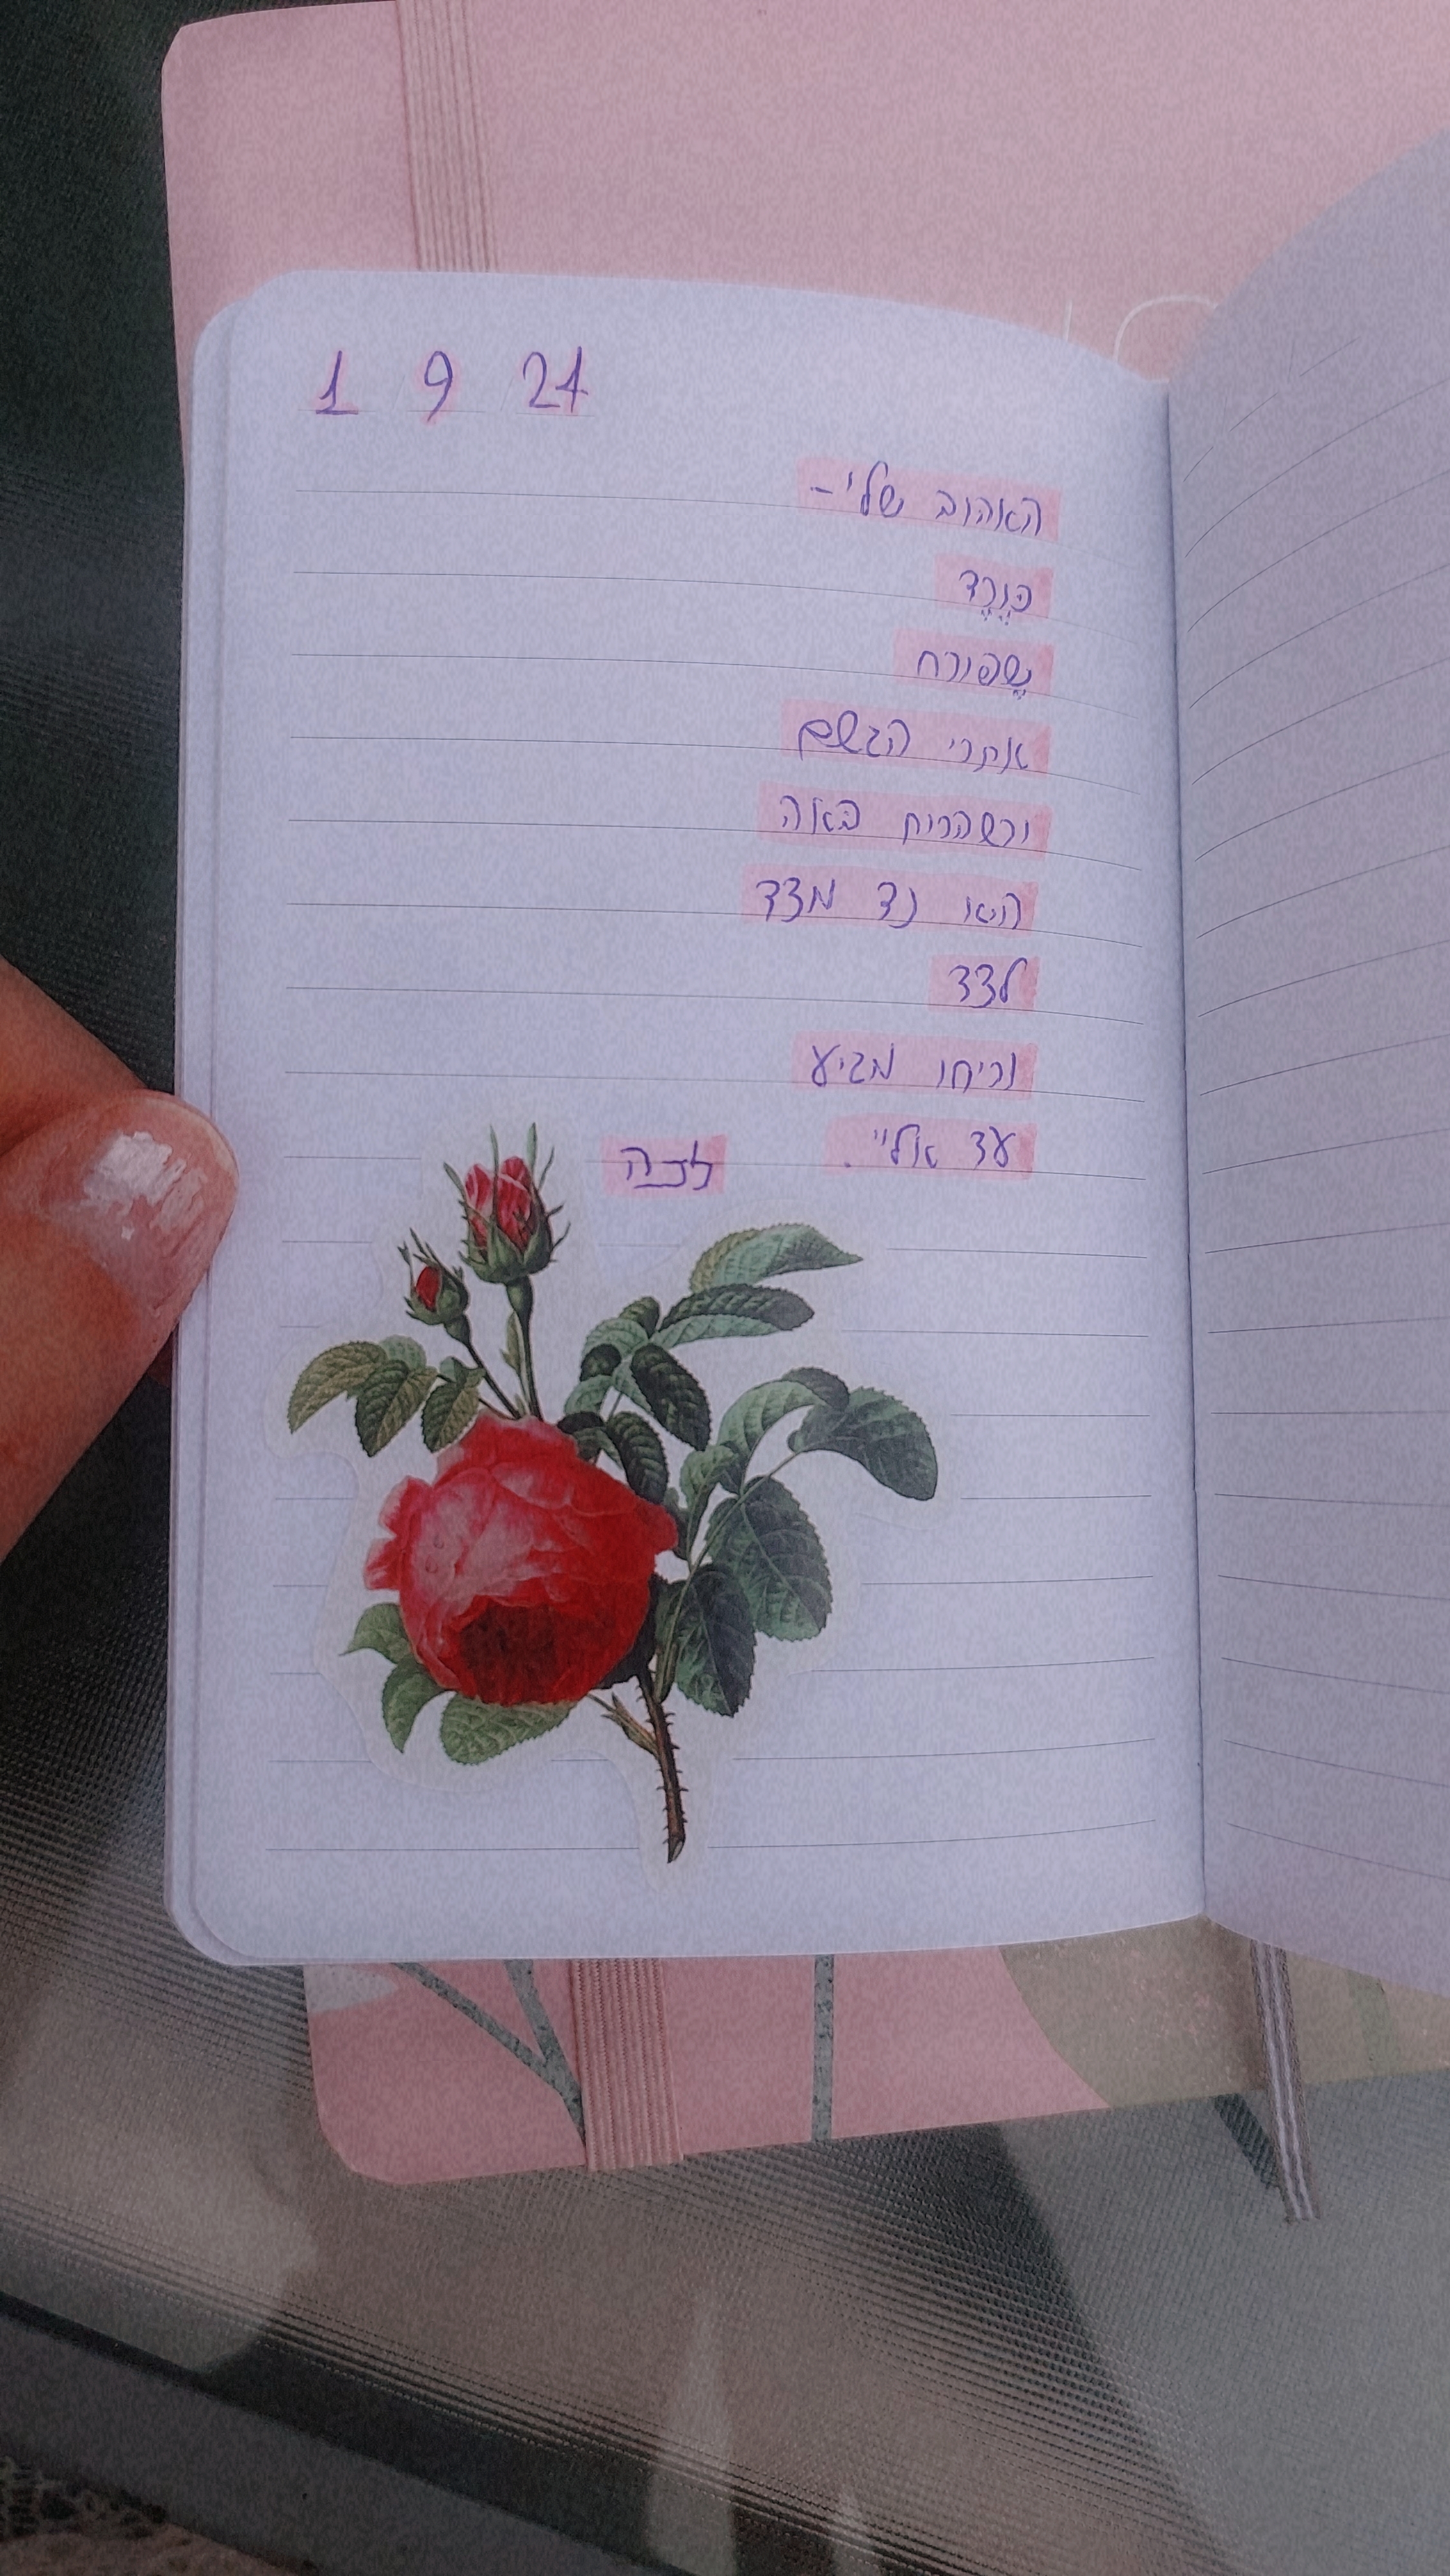 1 9 24
האהוב שלי -
כְּוֶרֶד
שֶׁפורח
אחרי הגשם
וכשהרוח באה
הוא נד מצד
לצד
וריחו מגיע
עד אליי.